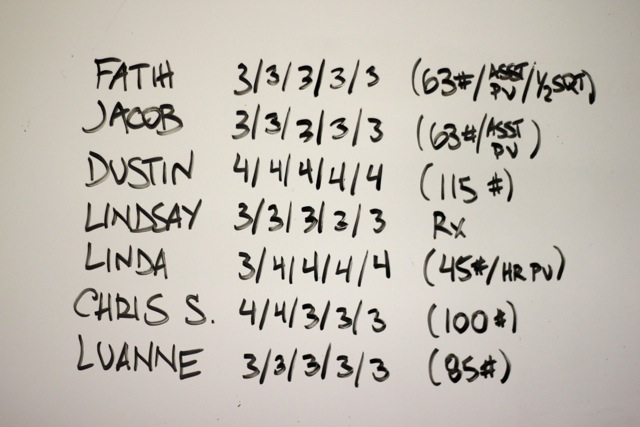 FATIH 3/3/3/3/3 (63#/ASST PU/1/2 SQT)
JACOB 3/3/3/3/3 (63#/ASST PU)
DUSTIN 4/4/4/4/4 (115 #)
LINDSAY 3/3/3/2/3 Rx
LINDA 3/4/4/4/4 (45#/HR PU)
CHRIS S. 4/4/3/3/3 (100#)
LUANNE 3/3/3/3/3 (85#)